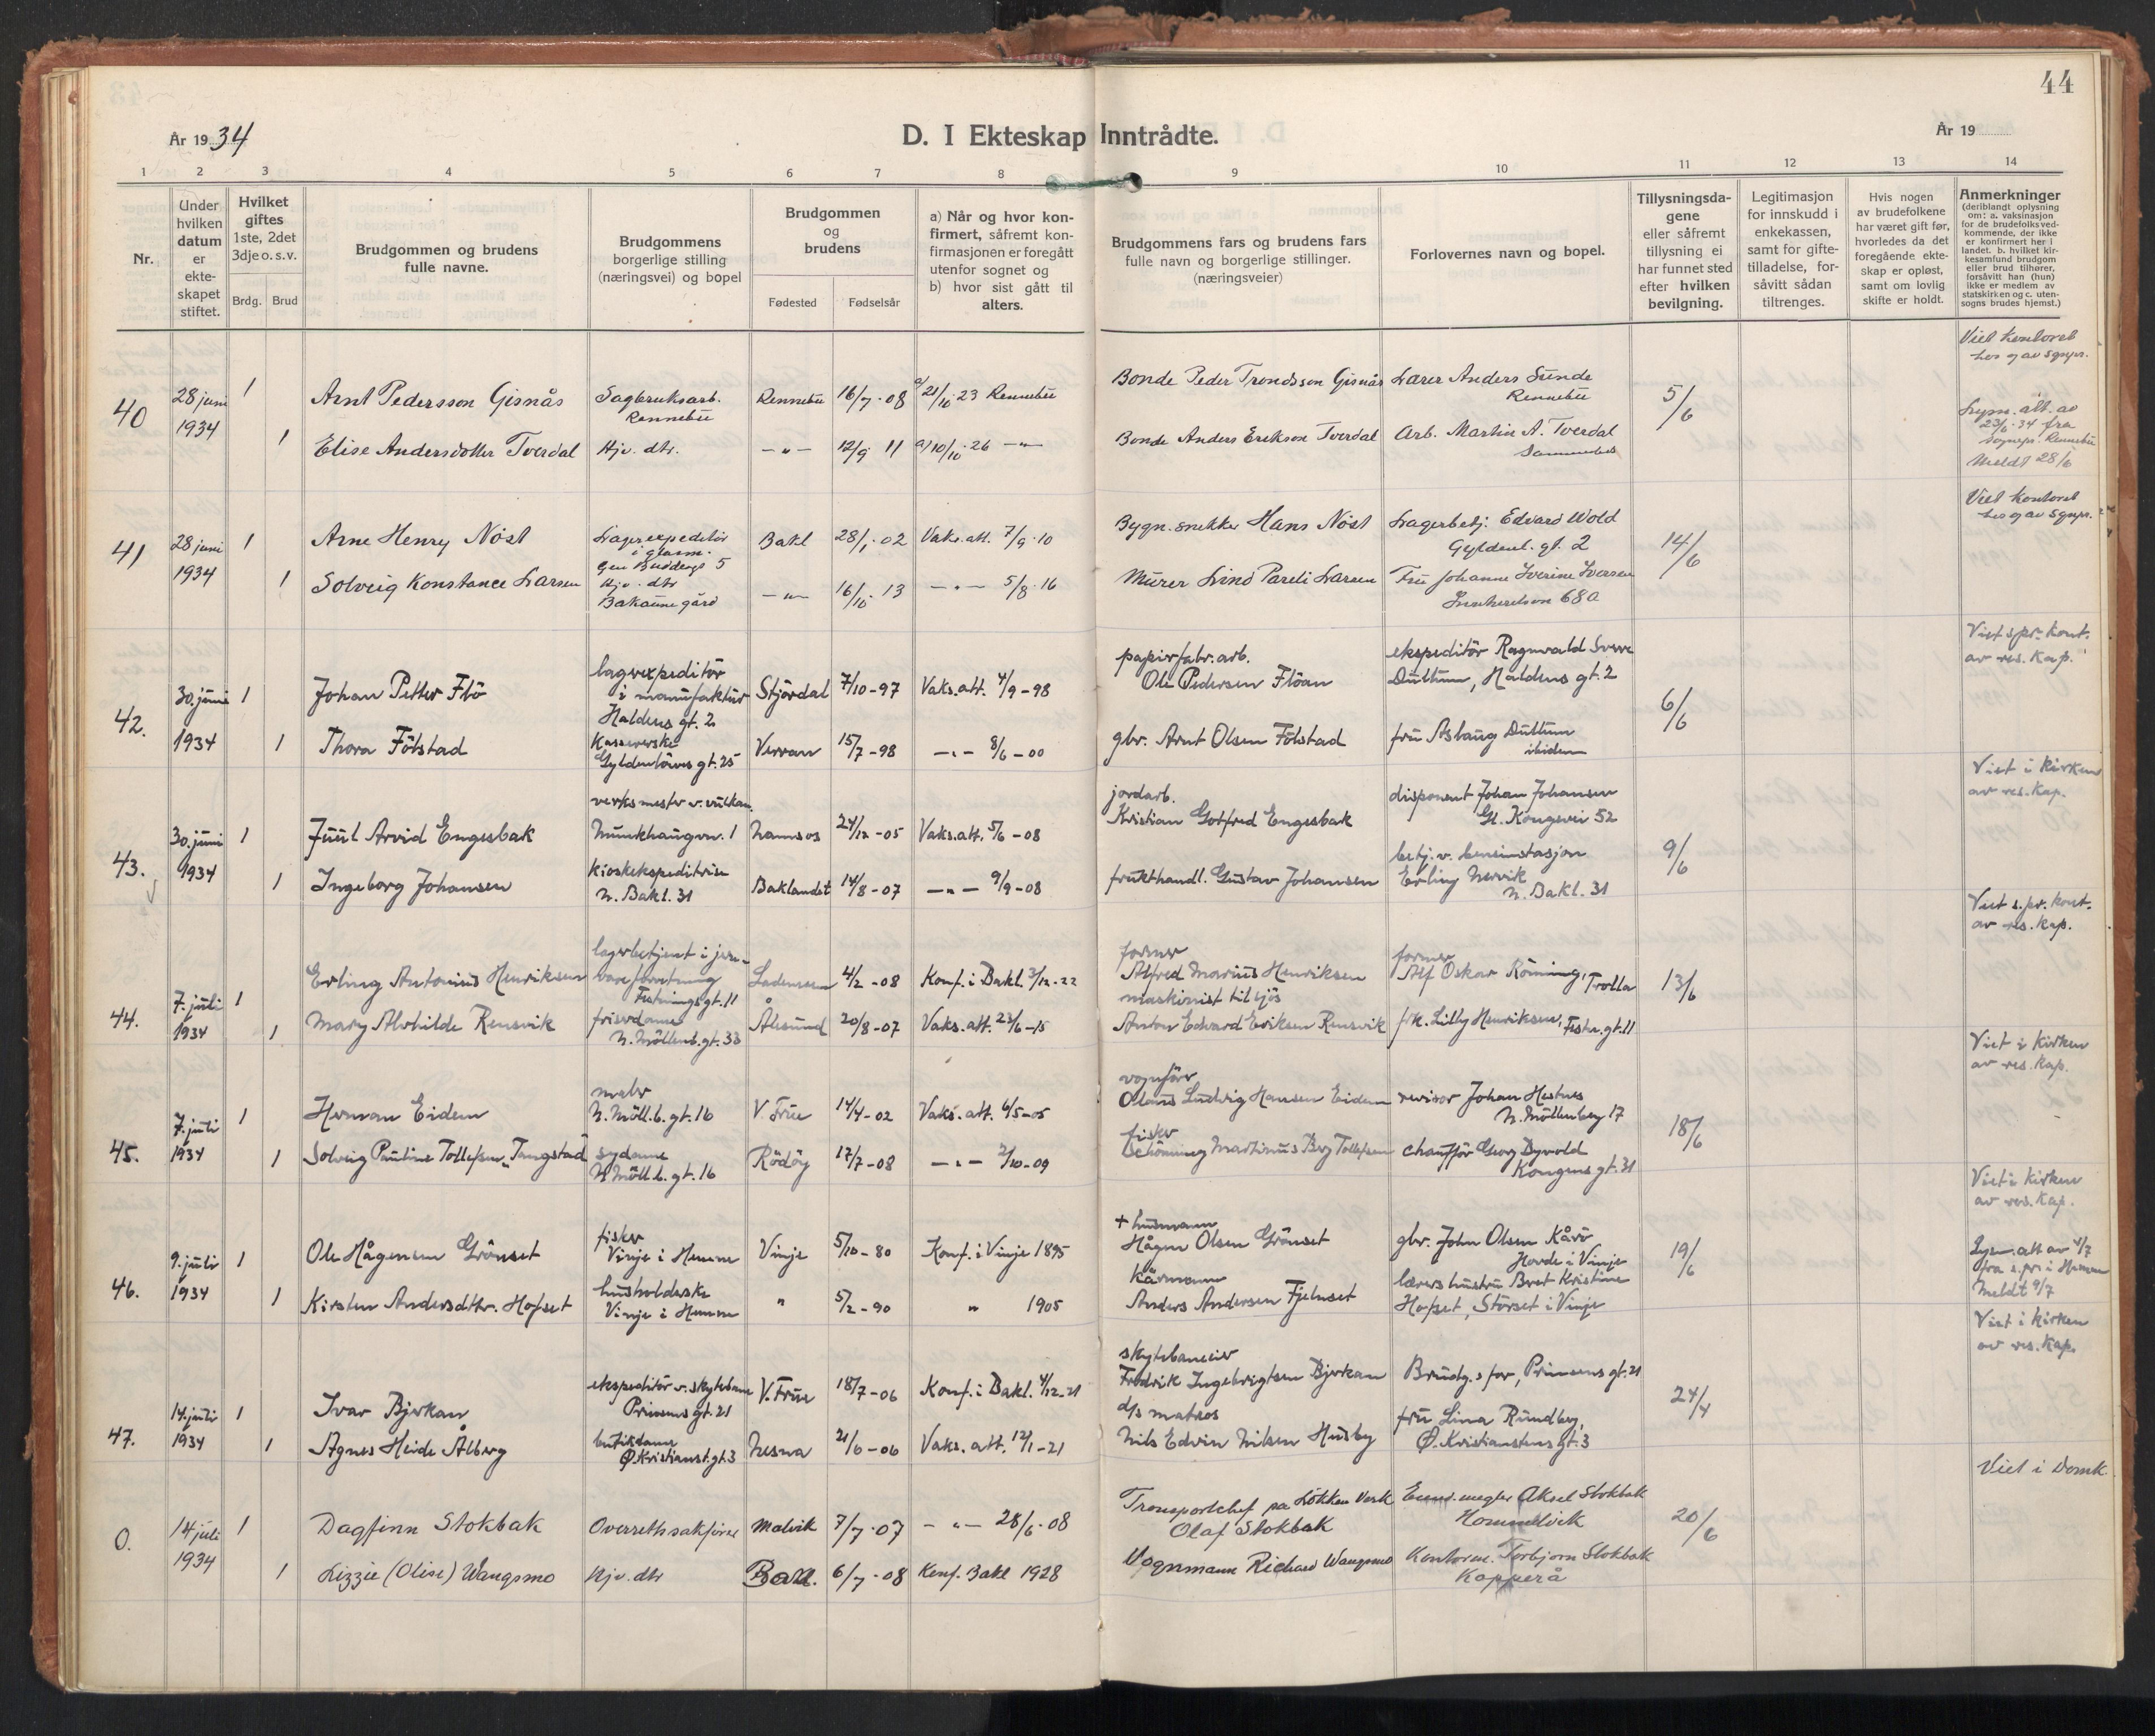 44
År 1934
D. I Ekteskap Inntrådte.
År 19
1 2 3 4 5 6 7 8 9 10 11 12 13 14
Nr.
Under hvilken datum er ekteskapet stiftet.
Hvilket giftes 1ste, 2det 3dje o. s. v.
Brdg. Brud
Brudgommen og brudens fulle navne.
Brudgommens borgerlige stilling (næringsvei) og bopel
Brudgommen og brudens
Fødested Fødselsår
a) Når og hvor konfirmert, såfremt konfirmasjonen er foregått utenfor sognet og b) hvor sist gått til alters.
Brudgommens fars og brudens fars fulle navn og borgerlige stillinger. (næringsveier)
Forlovernes navn og bopel.
Tillysningsdagene eller såfremt tillysning ei har funnet sted efter hvilken bevilgning.
Legitimasjon for innskudd i enkekassen, samt for giftetilladelse, forsåvitt sådan tiltrenges.
Hvis nogen av brudefolkene har været gift før, hvorledes da det foregående ekteskap er opløst, samt om lovlig skifte er holdt.
Anmerkninger (deriblandt oplysning om: a. vaksinasjon for de brudefolksvedkommende, der ikke er konfirmert her i landet. b. hvilket kirkesamfund brudgom eller brud tilhører, forsåvitt han (hun) ikke er medlem av statskirken og c. utensogns brudes hjemst.)
40 28 juni 1934
1 Arnt Pedersson Gisnås Sagbruksarb. Rennebu Rennebu 16/7-08 a) 21/10 23 Rennebu Bonde Peder Trondsson Gisnås Lærer Anders Sunde Rennebu 5/6
1 Elise Andersdotter Tverdal Hjv. dtr. -"- 12/9 11 a) 10/10 26 -"- Bonde Anders Erikson Tverdal Arb. Martin A. Tverdal
Viet kontoret
Lysn. att. av 23/6-34 fra sognepr. Rennebu
Meldt 28/6
41 28 juni 1934
1 Arne Henry Nøst Lagerexpeditør Bakl 28/1 02 Vaks. att. 7/9-10 Bygn. snekker Hans Nøst Lagerbetj. Edvard Wold Gyldenl. gt. 2 14/6
1 Solveig Konstance Larsen Hjv. dtr Bakaune gård -"- 16/10 13 -"- 5/8-16 Murer Lind Pareli Larsen Fru Johanne Iverine Iversen 68 a
Viet kontoret
42. 30. juni 1934
1 Johan Petter Flö lagerexpeditör i manufaktur Haldens gt. 2 Stjördal 7/10-97 Vaks. att. 4/9-98 papirfabr. arb. Ole Pedersen Flöan ekspeditör Ragnvald Sverre Duttum, Haldens gt. 2 6/6
1 Thora Fölstad Kassererske Gyldenlöves gt. 25 Verran 15/7-98 -"- 8/6-00 gbr. Arnt Olsen Fölstad fru Aslaug Duttum ibidem
Viet s.pr. kont. av res. Kap.
43. 30. juni 1934
1 Juul Arvid Engesbak verksmester v. vulkan. Munkhaugvn. 1 Namsos 24/12-05 Vaks. att. 5/6-08 jordarb. Kristian Gotfred Engesbak disponent Johan Johansen Gl. Kongevei 52 9/6
1 Ingeborg Johansen Kioskekspeditrise N. Bakl. 31 Baklandet 14/8-07 -"- 9/9-08 frukthandl. Gustav Johansen betj. v. bensinstasjon Erling Nervik N. Bakl. 31
Viet i kirken av res. Kap.
44. 7. juli 1934
1 Erling Antonius Henriksen lagerbetjent i jernvareforretning Festningsgt. 11 Lademoen 4/2-08 Konf. i Bakl. 3/12-22 former Alfred Marius Henriksen former Alf Oskar Röming, Trolla 13/6
1 Mary Alvhilde Rensvik friserdame N. Möllenb. gt. 33 Ålesund 20/8-07 Vaks. att. 23/6-15 maskinist tilsjös Anton Edvard Eriksen Rensvik frk. Lilly Henriksen, Festn. gt. 11
Viet s. pr. kont. av res. Kap.
45. 7. juli 1934
1 Herman Eidem maler N. Möll.b. gt. 16 V. Frue 14/4-02 Vaks. att. 6/5-05 vognförer Olaus Ludvig Hansen Eidem revisor Johan Hestnes N. Möllenberg 17 18/6
1 Solveig Pauline Tollefsen Tangstad sydame N. Möll.b. gt. 16 Rödöy 17/7-08 -"- 2/10-09 fisker Schöning Martinus Berg Tollefsen chauffør Georg Dyvold Kongens gt. 31
Viet i Kirken av res. Kap.
46. 9. juli 1934
1 Ole Hågensen Grönset fisker Vinje i Hemne Vinje 5/10-80 Konf. i Vinje 1895 + husmann Hågen Olsen Grönset gbr. John Olsen Kårö Hovde i Vinje 19/6
1 Kirsten Andersdtr. Hofset husholderske Vinje i Hemne " 5/2-90 " 1905 Kårmann Anders Andersen Fjelnset lærers hustru Beret Kristine Hofset, Störset i Vinje
Viet i kirken av res. Kap.
Lysn. att av 4/7 fra s.pr. i Hemne Meldt 9/7
47. 14. juli 1934
1 Ivar Bjerkan ekspeditör v. skytebane Prinsens gt. 21 V. Frue 18/7-06 Konf. i Bakl. 4/12-21 skytebaneeier Fredrik Ingebrigtsen Bjerkan Brudg.s far, Prinsens gt. 21 24/4
1 Agnes Heide Ålberg butikdame Ø. Kristianst. gt. 3 Nesna 21/6-06 Vaks. att. 12/1-21 d/s matros Nils Edvin Nilsen Husby fru Lina Rundberg, Ø. Kristianstens gt. 3
Viet i kirken av res. Kap.
0. 14 juli 1934
1 Dagfinn Stokbak Overrettssakfører Malvik 7/7-07 -"- 28/6-08 Transportchef på Løkken Verk Olaf Stokbak Eiend. megler Aksel Stokbak Hommelvik 20/6
1 Lizzie (Olise) Wangsmo Hjv. dtr Bakl. 6/7-08 Konf. Bakl 1928 Vognmann Richard Wangsmo Kontorm. Torbjørn Stokbak Kopperå
Viet i Domk.